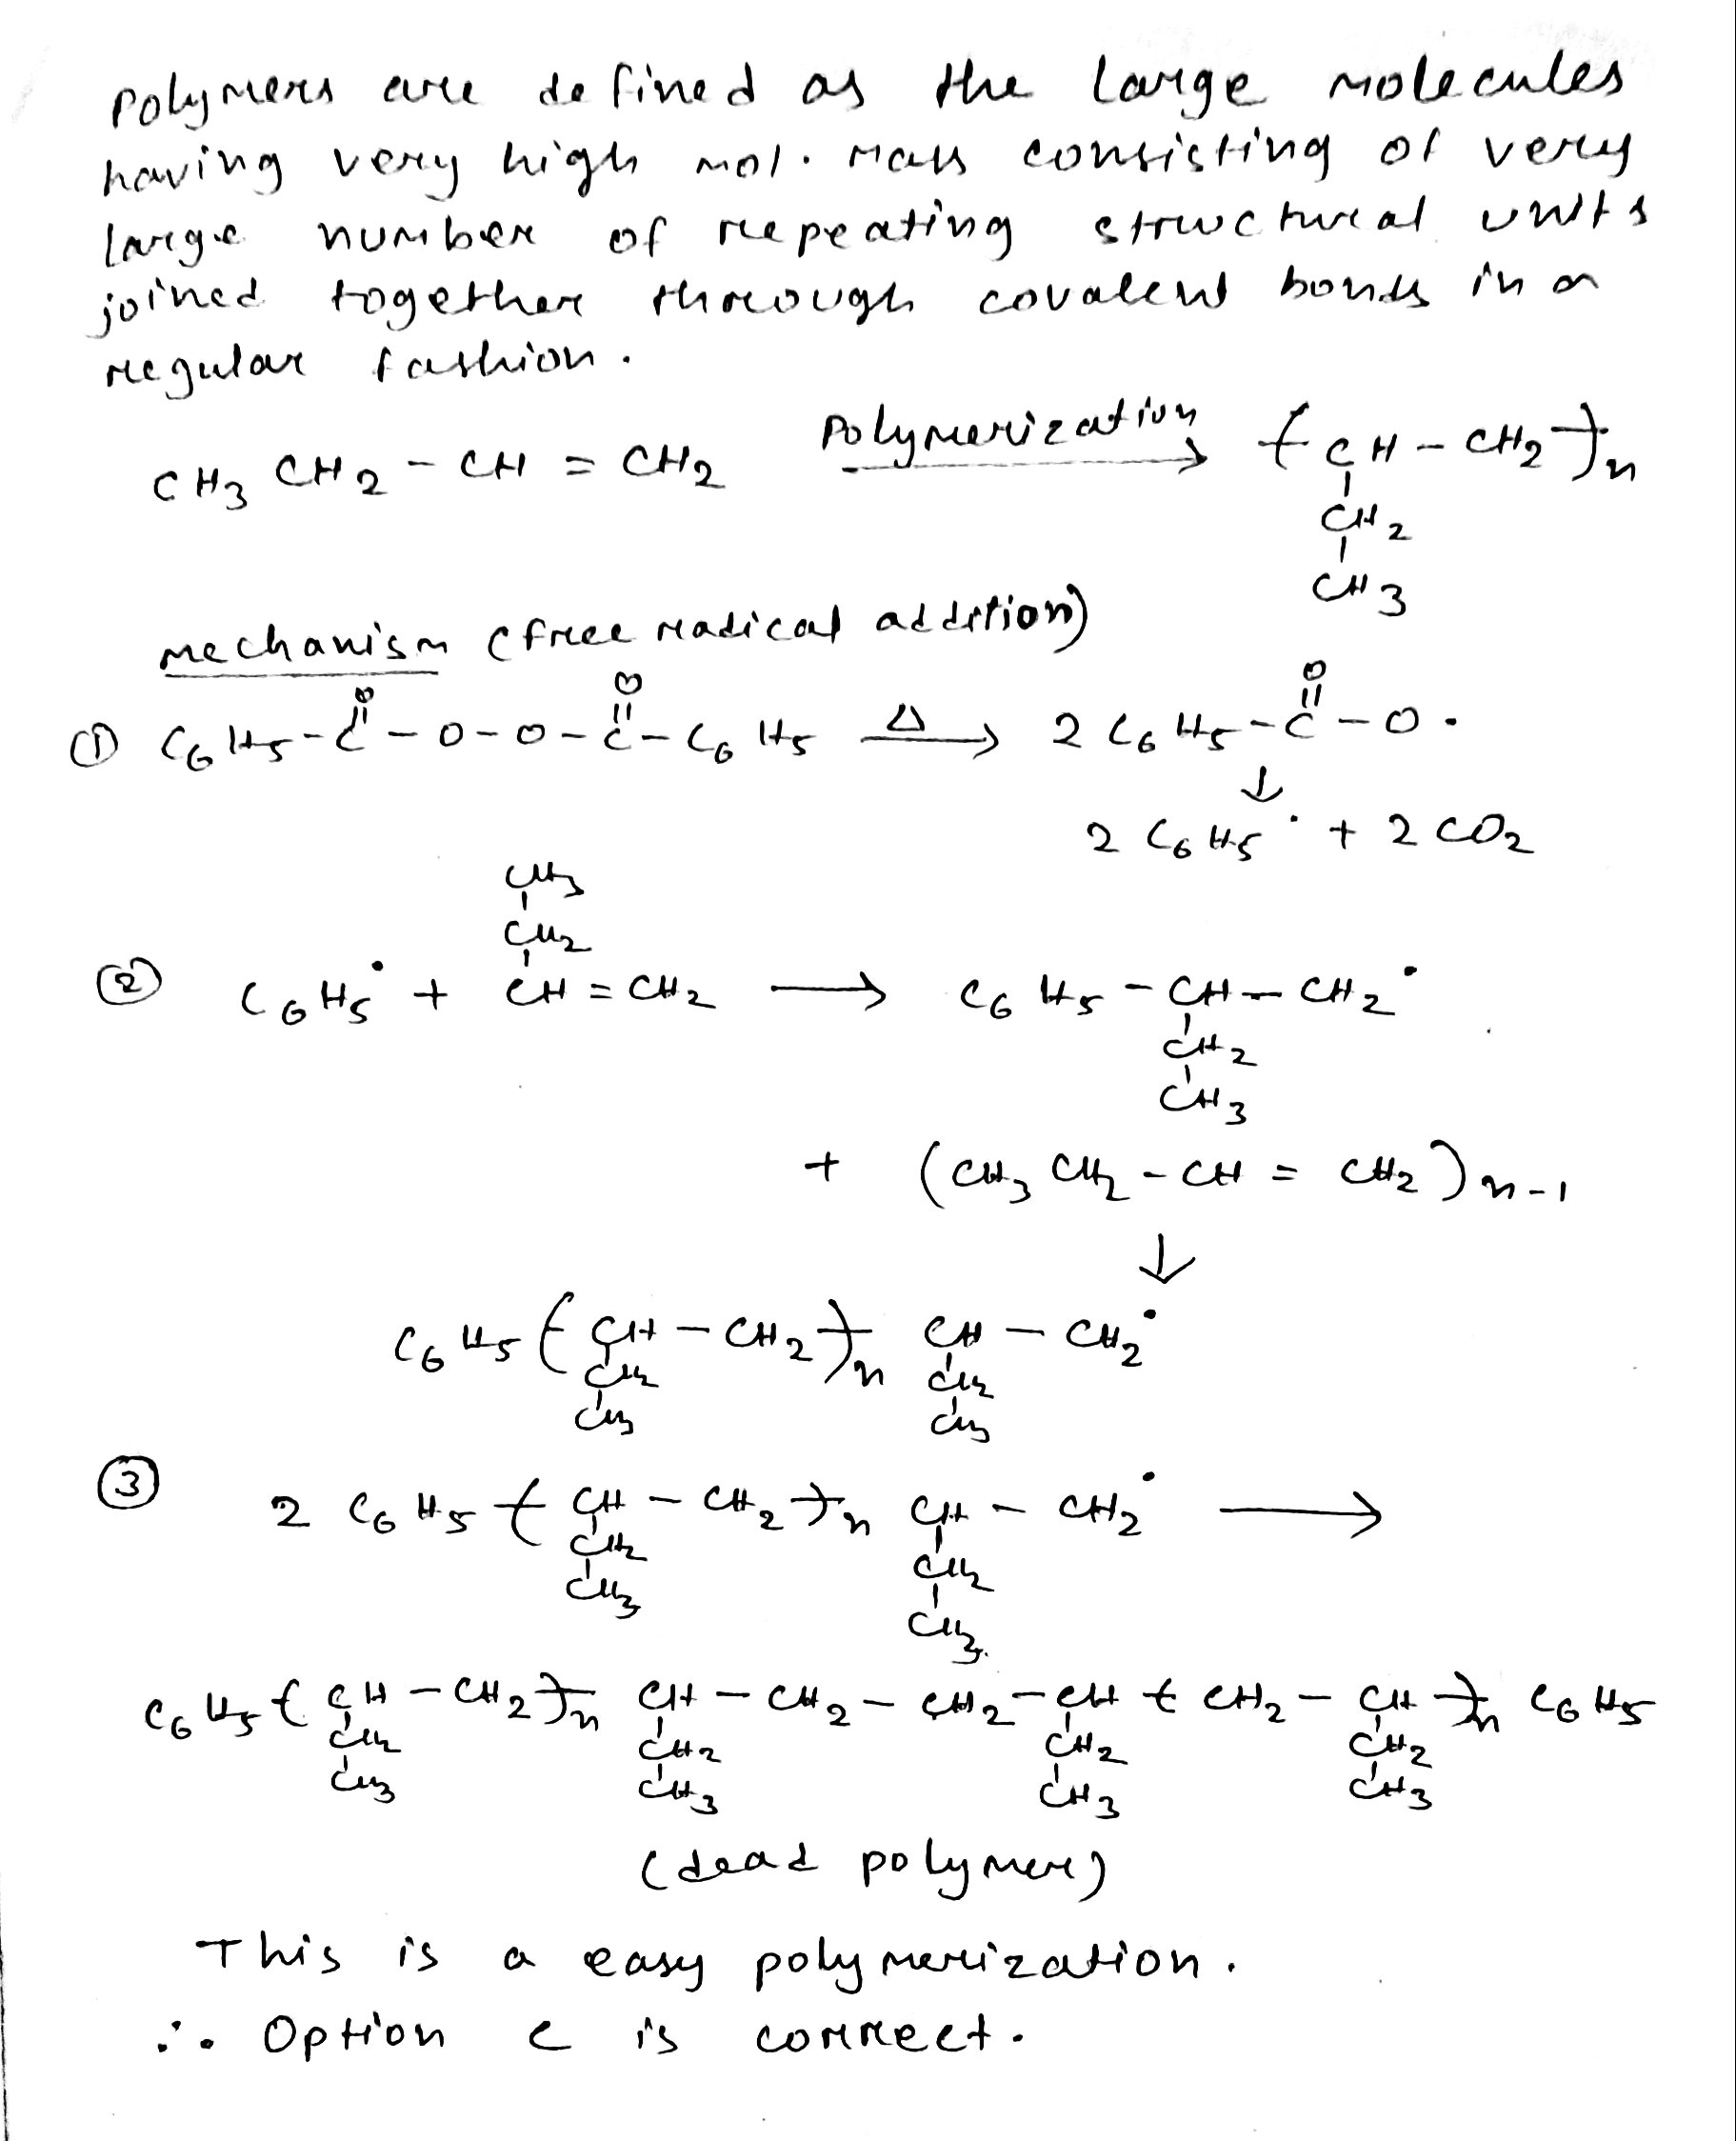 Polymers are defined as the large molecules
having very high mol. mass consisting of very
large number of repeating structural units
joined together through covalent bonds in a
regular fashion.
CH3 CH2 - CH = CH2 Polymerization → -( CH - CH2 )-n
CH2
CH3
Mechanism (free radical addition)
① C6H5 - C - O - O - C - C6H5 Δ → 2 C6H5 - C - O •
O O O
↓
2 C6H5 • + 2 CO2
CH3
CH2
② C6H5 • + CH = CH2 → C6H5 - CH - CH2 •
CH2
CH3
+ (CH3 CH2 - CH = CH2) n-1
↓
C6H5 -( CH - CH2 )-n CH - CH2 •
CH2 CH2
CH3 CH3
③ 2 C6H5 -( CH - CH2 )-n CH - CH2 • →
CH2 CH2
CH3 CH3
C6H5 -( CH - CH2 )-n CH - CH2 - CH2 - CH -( CH2 - CH )-n C6H5
CH2 CH2 CH2 CH2
CH3 CH3 CH3 CH3
(dead polymer)
This is a easy polymerization.
∴ Option C is correct.